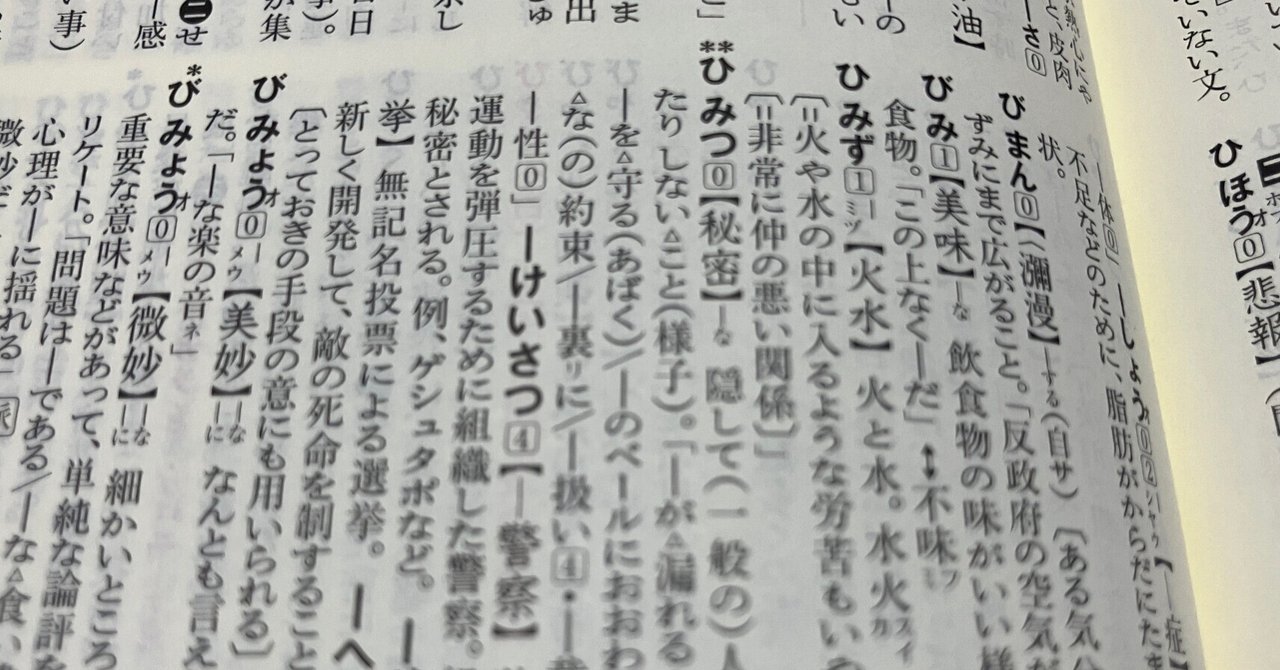 いない文。
ひほう オ⓪【悲報】
―さ⓪
と、皮肉
―体⓪」 ―しょう⓪② シャウ【―症】
不足などのために、脂肪がからだにた
状。
びまん⓪【〈瀰漫】―する(自サ)〔ある気分
ずみにまで広がること。「反政府の空気が
びみ①【美味】―な 飲食物の味がいい様
食物。「この上なく―だ」↔不味
ひみず①―ミヅ【火水】 火と水。水火
〔=火や水の中に入るような労苦もい
〔=非常に仲の悪い関係〕」
**ひみつ⓪【秘密】―な 隠して(一般の)人
たりしない△こと(様子)。「―が△漏れる
―を△守る(あばく)/―のベールにおおわ
△な(の)約束/―裏リに/―扱い④・―
―性⓪」 ―けいさつ④【―警察】
運動を弾圧するために組織した警察。
秘密とされる。例、ゲシュタポなど。 ―
挙】 無記名投票による選挙。 ―へ
新しく開発して、敵の死命を制すること
〔とっておきの手段の意にも用いられる〕
びみょう オ⓪―メウ【美妙】―な ―に なんとも言え
だ。「―な楽の音ネ」
*びみょう オ⓪―メウ【微妙】―な ―に 細かいところ
重要な意味などがあって、単純な論評を
リケート。「問題は―である/―な△食い
心理が―に揺れる」派
微妙だ
油】
の
もい
と」
ま
出
ゅ
示し
日
事)。
が集
㊁せ
―感
い事)